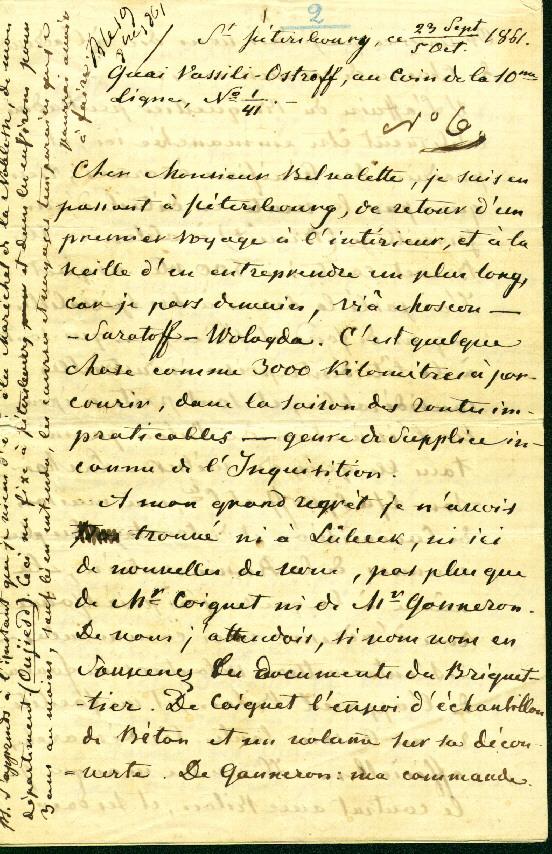 2
St Pétersbourg, ce 23 Sept / 5 Oct. 1861.
Quai Vassili-Ostroff, au Coin de la 10me
Ligne, No 1/41. -
No 6.
Cher Monsieur Belvalette, je suis en
passant à Pétersbourg, de retour d'un
premier voyage à l'intérieur, et à la
veille d'en entreprendre un plus long,
car je pars demain, viâ Moscou —
- Saratoff - Wologda. C'est quelque
chose comme 3000 Kilomètres à par-
courir, dans la saison des routes im-
praticables — genre de supplice in-
connu de l'Inquisition.
A mon grand regret je n'avois
trouvé ni à Lübeck, ni ici
de nouvelles de vous, pas plus que
de Mr Coignet ni de Mr Ganneron.
De vous j'attendois, si vous vous en
souvenez les documents du Briquet-
-tier. De Coignet l'envoi d'échantillons
de Béton et un volume sur sa décou-
=verte. De Ganneron: ma commande.
J'apprends à l'instant que je viens d'être élu Maréchal de la Noblesse, de mon
département (Oujiesd). Ceci me fixe à Pétersbourg et dans les environs pour
3 ans au moins, sauf bien entendu, les courses et voyages temporaires que je
pourrai avoir
à faire.